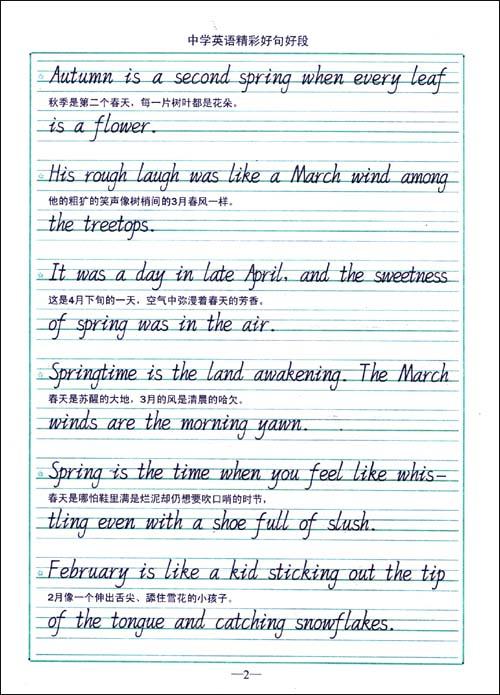 中学英语精彩好句好段
Autumn is a second spring when every leaf
秋季是第二个春天，每一片树叶都是花朵。
is a flower.
His rough laugh was like a March wind among
他的粗犷的笑声像树梢间的3月春风一样。
the treetops.
It was a day in late April, and the sweetness
这是4月下旬的一天，空气中弥漫着春天的芳香。
of spring was in the air.
Springtime is the land awakening. The March
春天是苏醒的大地，3月的风是清晨的哈欠。
winds are the morning yawn.
Spring is the time when you feel like whis-
春天是哪怕鞋里满是烂泥却仍想要吹口哨的时节，
tling even with a shoe full of slush.
February is like a kid sticking out the tip
2月像一个伸出舌尖、舔住雪花的小孩子。
of the tongue and catching snowflakes.
—2—